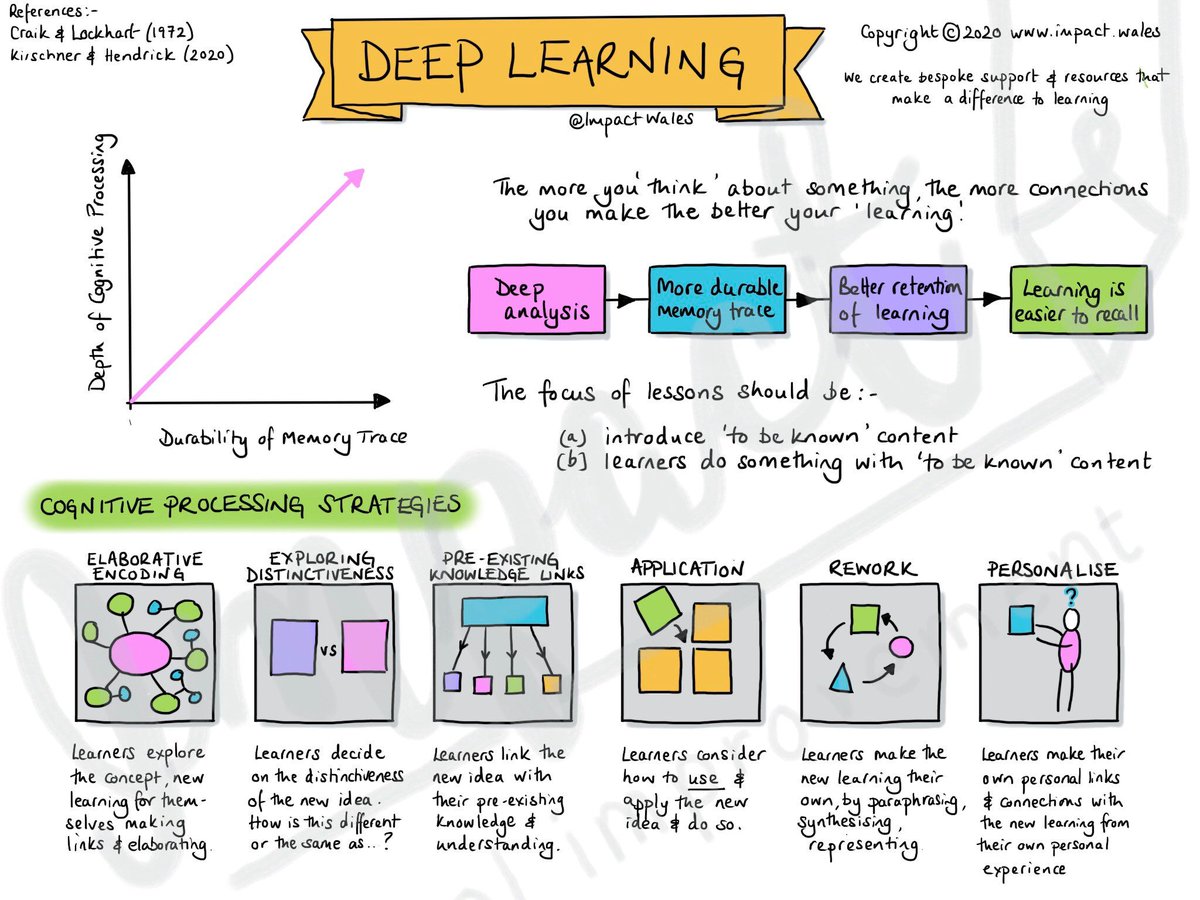 References:-
Craik & Lockhart (1972)
Kirschner & Hendrick (2020)
DEEP LEARNING
@ImpactWales
Copyright ©2020 www.impact.wales
We create bespoke support & resources that
make a difference to learning
Depth of Cognitive Processing
Durability of Memory Trace
The more you 'think' about something, the more connections
you make the better your 'learning'.
Deep
analysis
More durable
memory trace
Better retention
of learning
Learning is
easier to recall
The focus of lessons should be:-
(a) introduce 'to be known' content
(b) learners do something with 'to be known' content
COGNITIVE PROCESSING STRATEGIES
ELABORATIVE
ENCODING
Learners explore
the concept, new
learning for them-
selves making
links & elaborating.
EXPLORING
DISTINCTIVENESS
vs
Learners decide
on the distinctiveness
of the new idea.
How is this different
or the same as..?
PRE-EXISTING
KNOWLEDGE LINKS
Learners link the
new idea with
their pre-existing
knowledge &
understanding.
APPLICATION
Learners consider
how to use &
apply the new
idea & do so.
REWORK
Learners make the
new learning their
own, by paraphrasing,
synthesising,
representing.
PERSONALISE
?
Learners make their
own personal links
& connections with
the new learning from
their own personal
experience
Impact
improvement